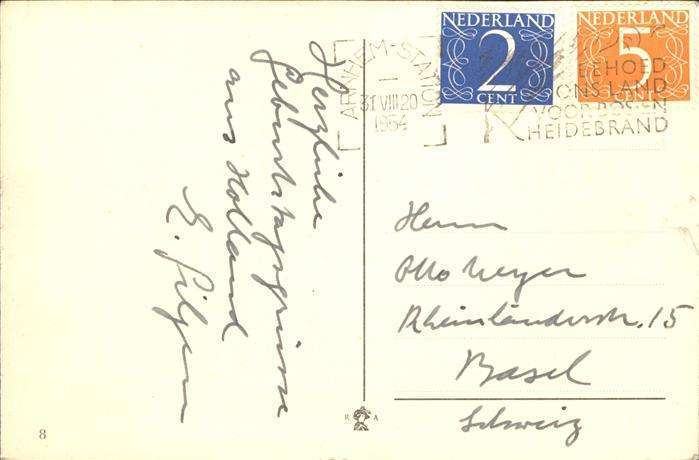 Herzliche
Geburtstagsgrüsse
aus Holland
E. Gilgen
NEDERLAND
2
CENT
NEDERLAND
5
ARNHEM-STATION
31 VIII 20
1954
BEHOED
ONS LAND
VOOR BOSEN
HEIDEBRAND
Herrn
Otto Meyer
Rheinländerstr. 15
Basel
Schweiz
R A
8